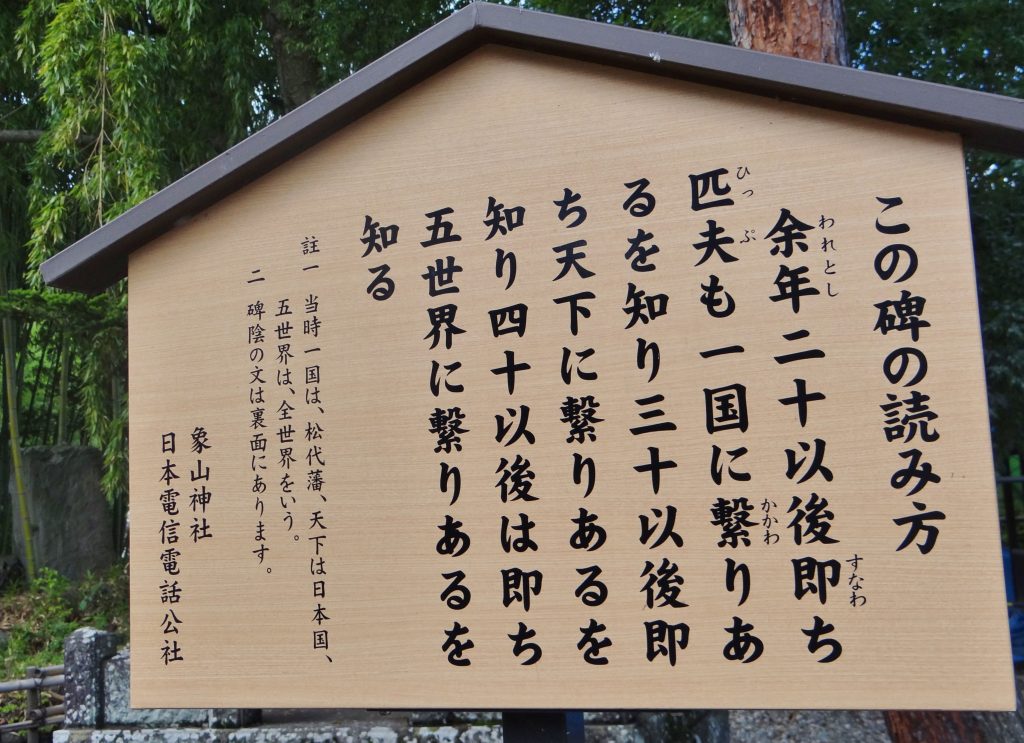 この碑の読み方
余年二十以後即ち
われとし
すなわ
匹夫も一国に繋りあ
ひっ
ぷ
かかわ
るを知り三十以後即
ち天下に繋りあるを
知り四十以後は即ち
五世界に繋りあるを
知る
註一 当時一国は、松代藩、天下は日本国、
五世界は、全世界をいう。
二 碑陰の文は裏面にあります。
象山神社
日本電信電話公社